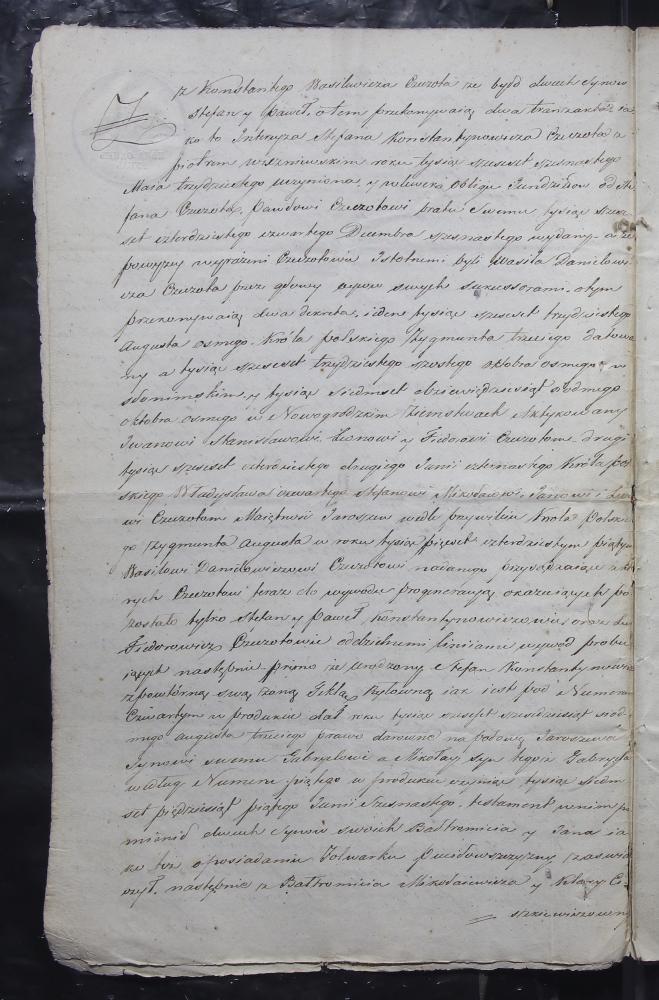 z Konstantego Wasilewicza Czeczota że było dwuch Synow
Stefan y Paweł, o tem przekonywaią dwa tranzakta ia-
ko to Intercyza Stefana Konstantynowicza Czeczota z
Piotrem Wiszniewskim roku tysiąc szeset szesnastego
Maia trzydziestego uczyniona, y
fana Czeczota, Pawłowi Czeczotowi bratu Swemu tysiąc szes-
set czterdziestego czwartego Decembra szesnastego wydany, a że
powyżey wyrażeni Czeczotowie Istotnemi byli Wasila Danielowi-
cza Czeczota przez głowy oycow swych Sukcessorami, o tym
przekonywaią dwa dekreta, ieden tysiąc szeset trzydziestego
Augusta osmego, Króla Polskiego Zygmunta trzeciego datowa-
ny a tysiąc szeset trzydziestego szostego oktobra osmego, w
słonimskim, y tysiąc siedmset dziewiędziesiąt siodmego
oktobra osmego w Nowogrodzkim Ziemstwach Aktykowany
Iwanowi Stanisławowi Leonowi y Fiedorowi Czeczotom, drugi
tysiąc szeset czterdziestego drugiego Junii czternastego Króla Pol-
skiego Władysława czwartego Stefanowi Mikołaiowi Janowi i
wi Czeczotom Maiętność Jaroszew wedle przywileiu Króla Polskie-
go Zygmunta Augusta w roku tysiąc pięcset czterdziestym piątym
Wasilowi Danielowiczowi Czeczotowi nadanego przysądzaiące z któ-
rych Czeczotow teraz do wywodu progeneracyą okazuiących po-
zostało tylko Stefan y Paweł Konstantynowiczowie oraz
Fiedorowicz Czeczotowie oddzielnemi liniiami wywod probu-
iących następnie primo że urodzony Stefan Konstantynowicz
z powtórną swą żoną Teklą iak iest pod Numerem
Czwartym w produkcie dał roku tysiąc szeset szesdziesiąt siod-
mego augusta trzeciego prawo darowne na połowę Jaroszewa
Synowi swemu Gabryelowi a Mikołay syn tegoż Gabryela
według Numeru piątego w produkcie czyniąc tysiąc siedm-
set piędziesiąt piątego Junii szesnastego, testament w nim po-
mienił dwuch Synow swoich Bałtromieia y Jana ia-
ko też o posiadaniu Folwarku zaświad-
czył, następnie z Bałtromieia Mikołaiewicza y Klary Ci-
szkiewiczowny